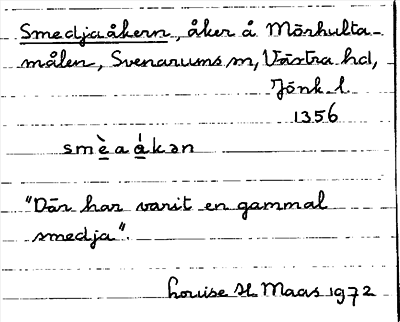 Smedjaåkern, åker å Mörhulta-
målen, Svenarums sn, Västra hd,
Jönk. l.
1356
smèaákən
"Där har varit en gammal
smedja".
Louise H. Maas 1972